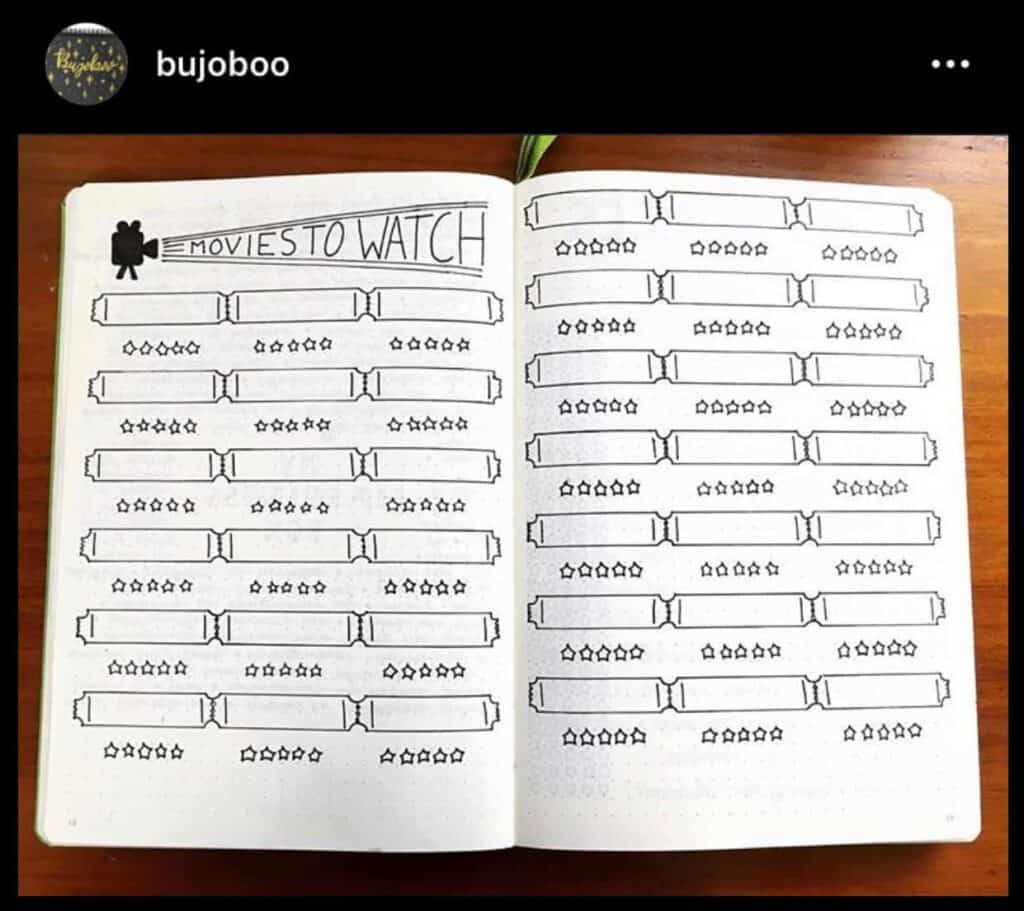 Bujoboo
bujoboo
MOVIES TO WATCH